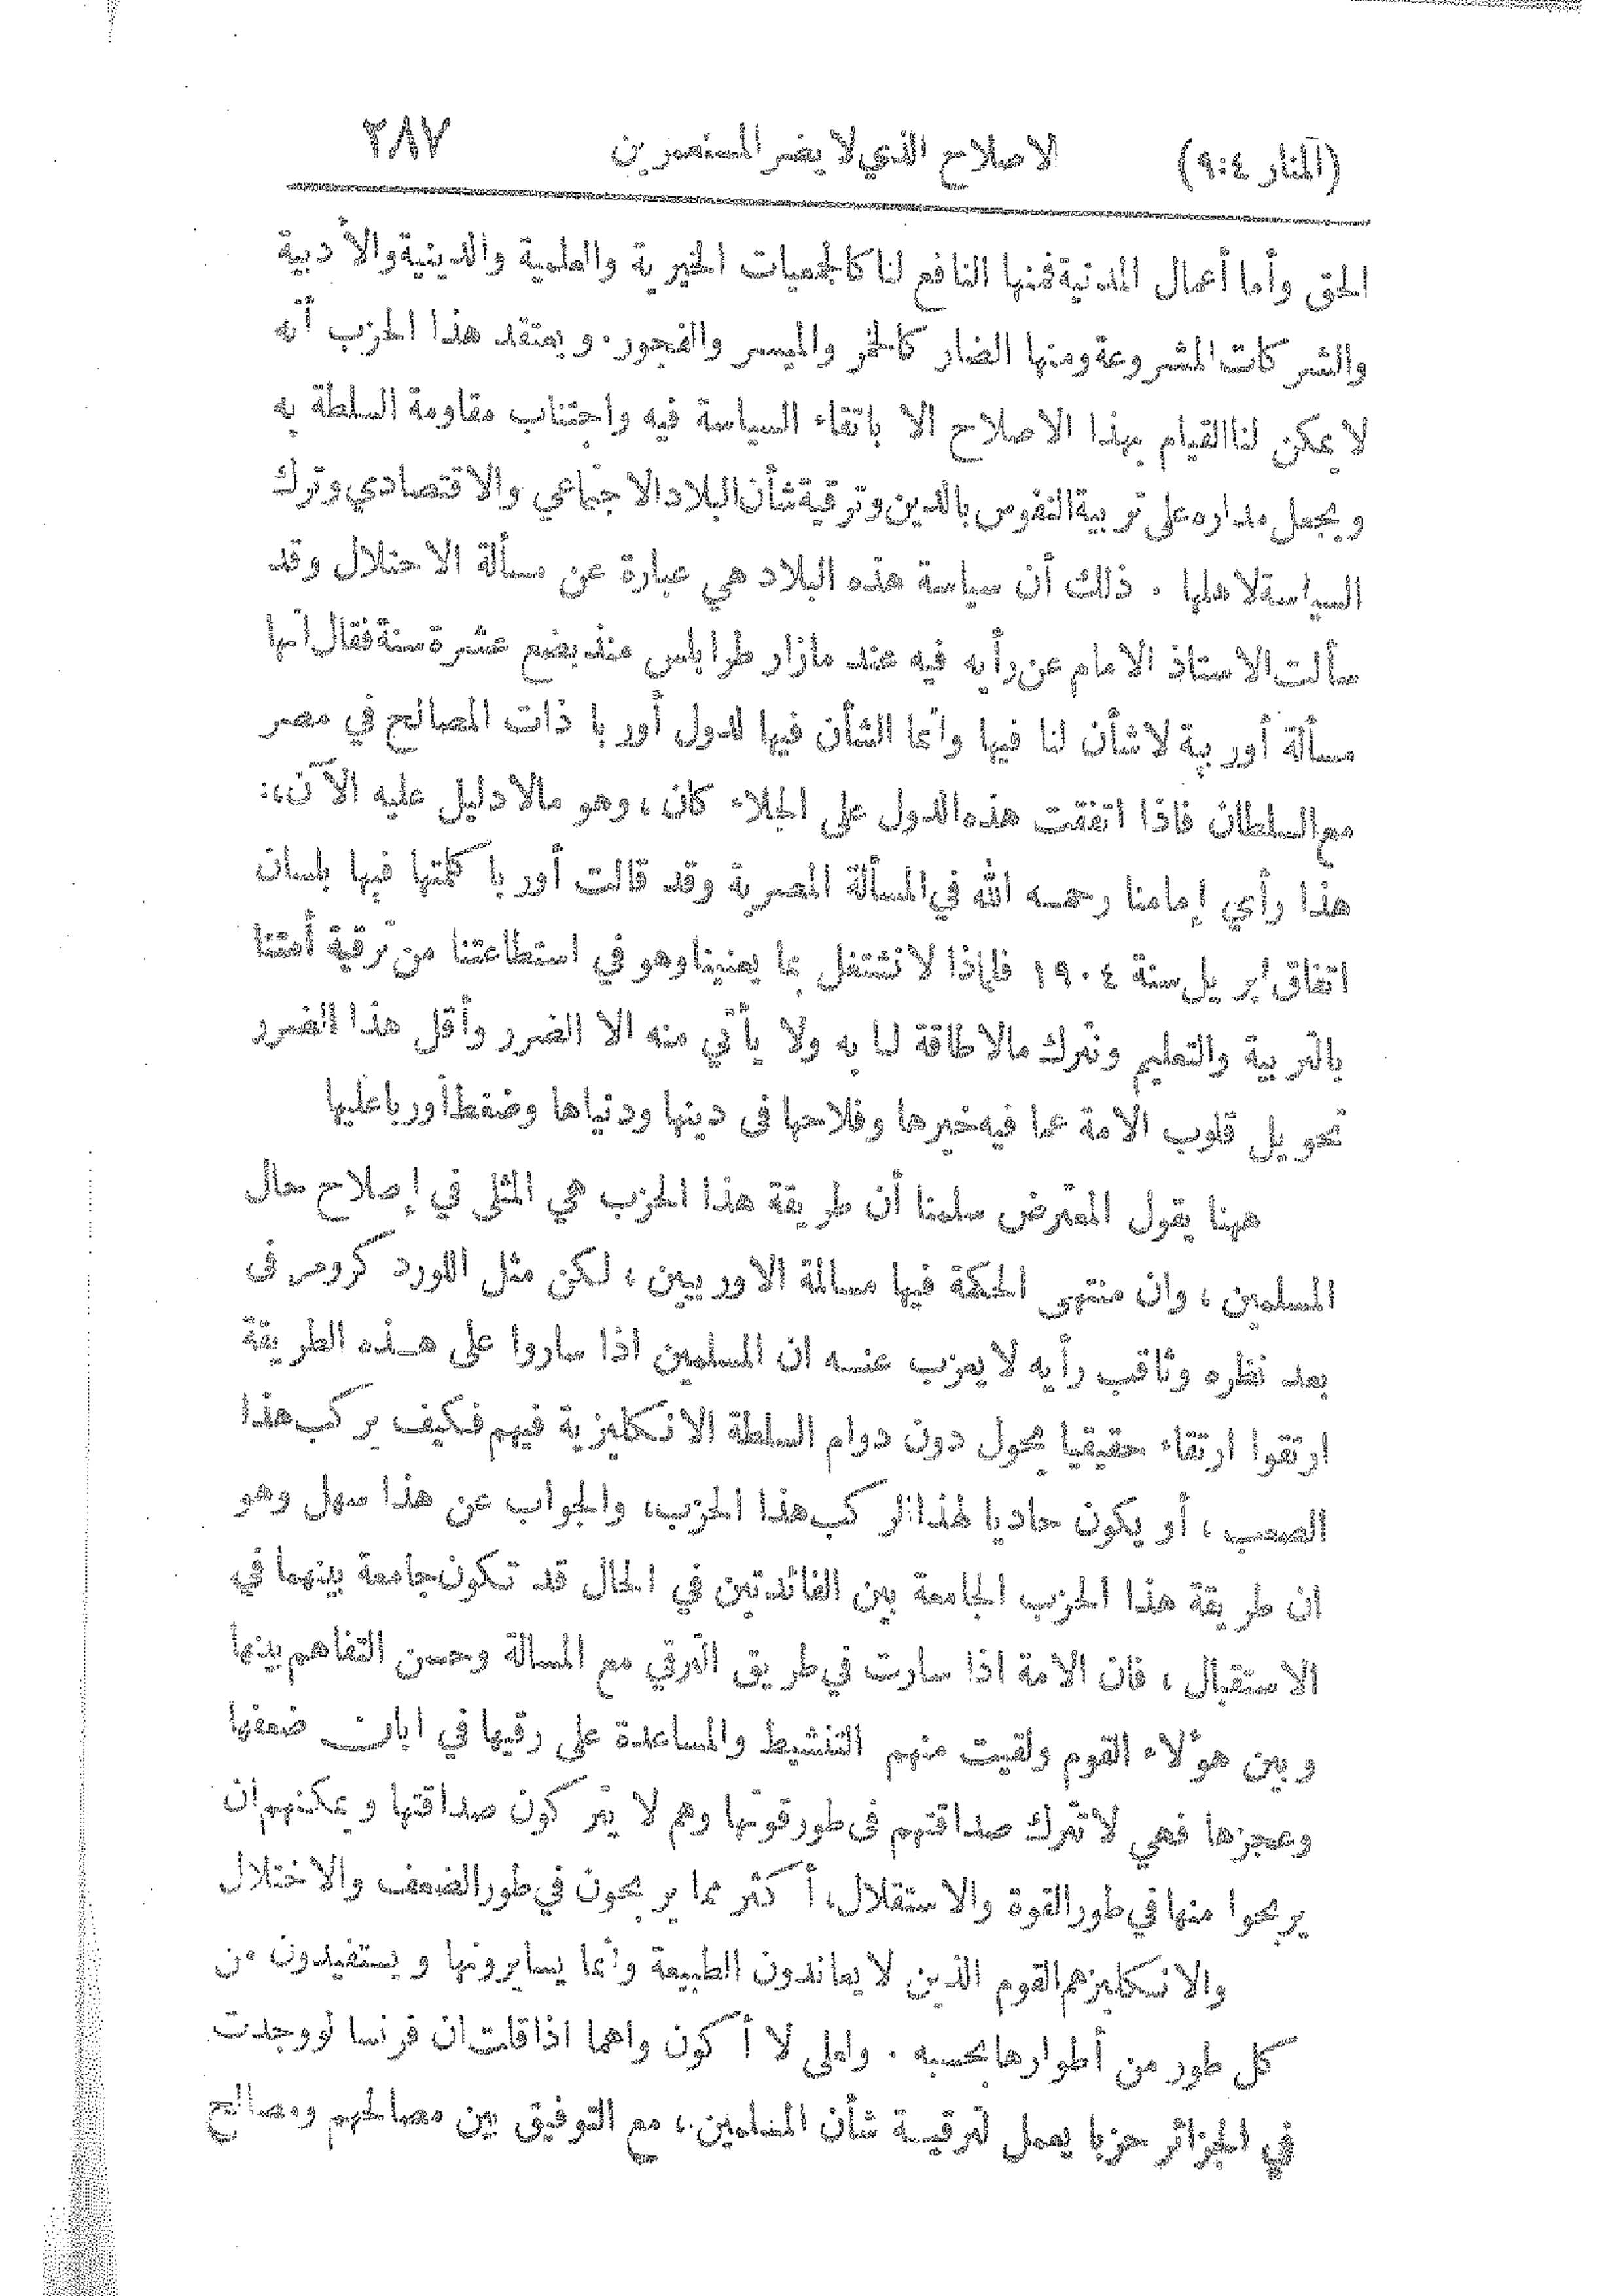 (المنار ٩:٤) الاصلاح الذي لا يضر المستعمرين ٢٨٧
الحق وأما أعمال المدنية فمنها النافع لنا كالجمعيات الخيرية والعلمية والدينية والأدبية
والشركات المشروعة ومنها الضار كالخمر والميسر والفجور. ويعتقد هذا الحزب أنه
لا يمكن لنا القيام بهذا الاصلاح الا باتقاء السياسة فيه واجتناب مقاومة السلطة به
ويجعل مداره على تربية النفوس بالدين وترقية شأن البلاد الاجتماعي والاقتصادي وترك
السياسة لاهلها . ذلك أن سياسة هذه البلاد هي عبارة عن مسألة الاحتلال وقد
سألت الاستاذ الامام عن رأيه فيه عند مازار طرابلس منذ بضع عشرة سنة فقال انها
مسألة أوربية لا شأن لنا فيها وانما الشأن فيها لدول أوربا ذات المصالح في مصر
مع السلطان فاذا اتفقت هذه الدول على الجلاء كان ، وهو مالا دليل عليه الآن ،:
هذا رأي إمامنا رحمه الله في المسألة المصرية وقد قالت أوربا كلمتها فيها بلسان
اتفاق ابريل سنة ١٩٠٤ فلماذا لا نشتغل بما يعنينا وهو في استطاعتنا من ترقية أمتنا
بالتربية والتعليم ونترك مالا طاقة لنا به ولا يأتي منه الا الضرر وأقل هذا الضرر
تحويل قلوب الامة عما فيه خيرها وفلاحها فى دينها ودنياها وضغط أوربا عليها
ههنا يقول المعترض سلمنا أن طريقة هذا الحزب هي المثلى في إصلاح حال
المسلمين ، وان منتهى الحكمة فيها مسالمة الاوربيين ، لكن مثل اللورد كرومر فى
بعد نظره وثاقب رأيه لا يعزب عنه ان المسلمين اذا ساروا على هذه الطريقة
ارتقوا ارتقاء حقيقيا يحول دون دوام السلطة الانكليزية فيهم فكيف يركب هذا
الصعب ، أو يكون حاديا لهذا الركب هذا الحزب، والجواب عن هذا سهل وهو
ان طريقة هذا الحزب الجامعة بين الفائدتين في الحال قد تكون جامعة بينهما في
الاستقبال ، فان الامة اذا سارت في طريق الترقي مع المسالمة وحسن التفاهم بينها
وبين هؤلاء القوم ولقيت منهم التنشيط والمساعدة على رقيها في ابان ضعفها
وعجزها فهي لا تترك صداقتهم فى طور قوتها وهم لا يتركون صداقتها ويمكنهم ان
يربحوا منها في طور القوة والاستقلال، أكثر مما يربحون في طور الضعف والاختلال
والانكليز هم القوم الذين لا يعاندون الطبيعة وانما يسايرونها ويستفيدون من
كل طور من أطوارها بحسبه . ولعلى لا أكون واهما اذا قلت ان فرنسا لو وجدت
في الجزائر حزبا يعمل لترقية شأن المسلمين ، مع التوفيق بين مصالحهم ومصالح